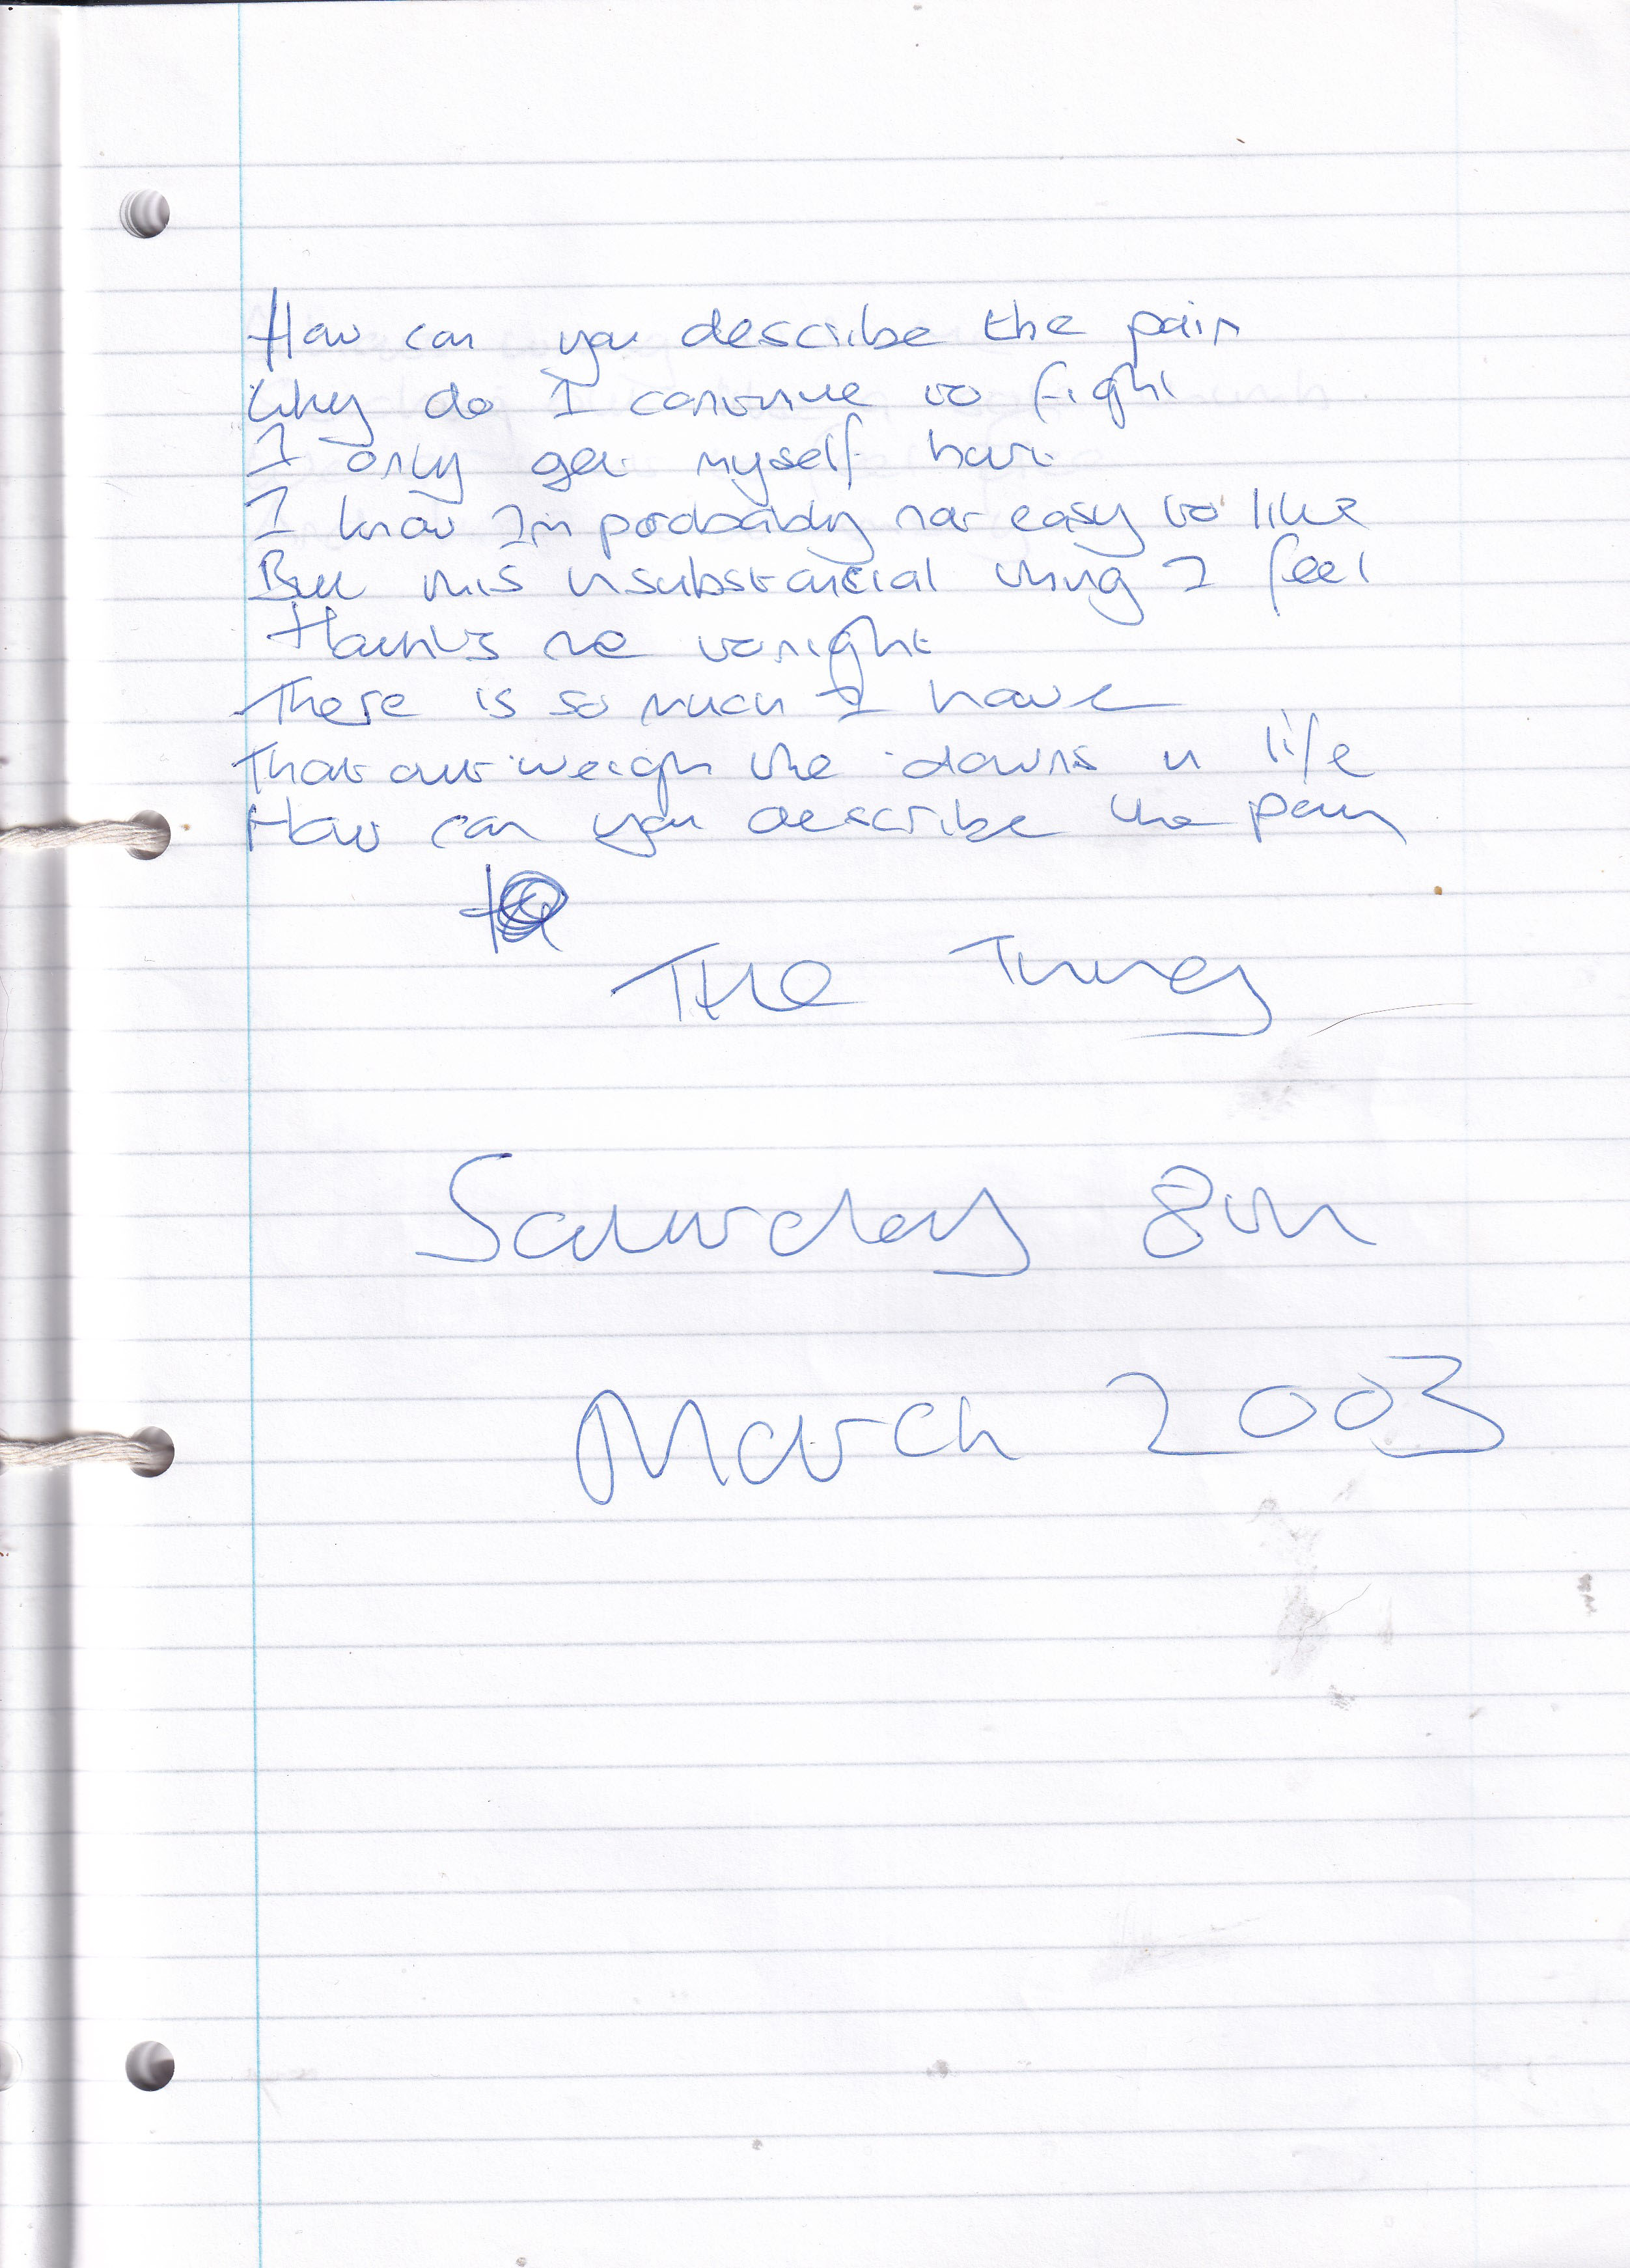 How can you describe the pain
Why do I continue to fight
I only get myself hurt
I know Im probably not easy to like
But this insubstancial thing I feel
Haunts me tonight
There is so much I have
That outweigh the downs in life
How can you describe the pain
The
Saturday 8th
March 2003